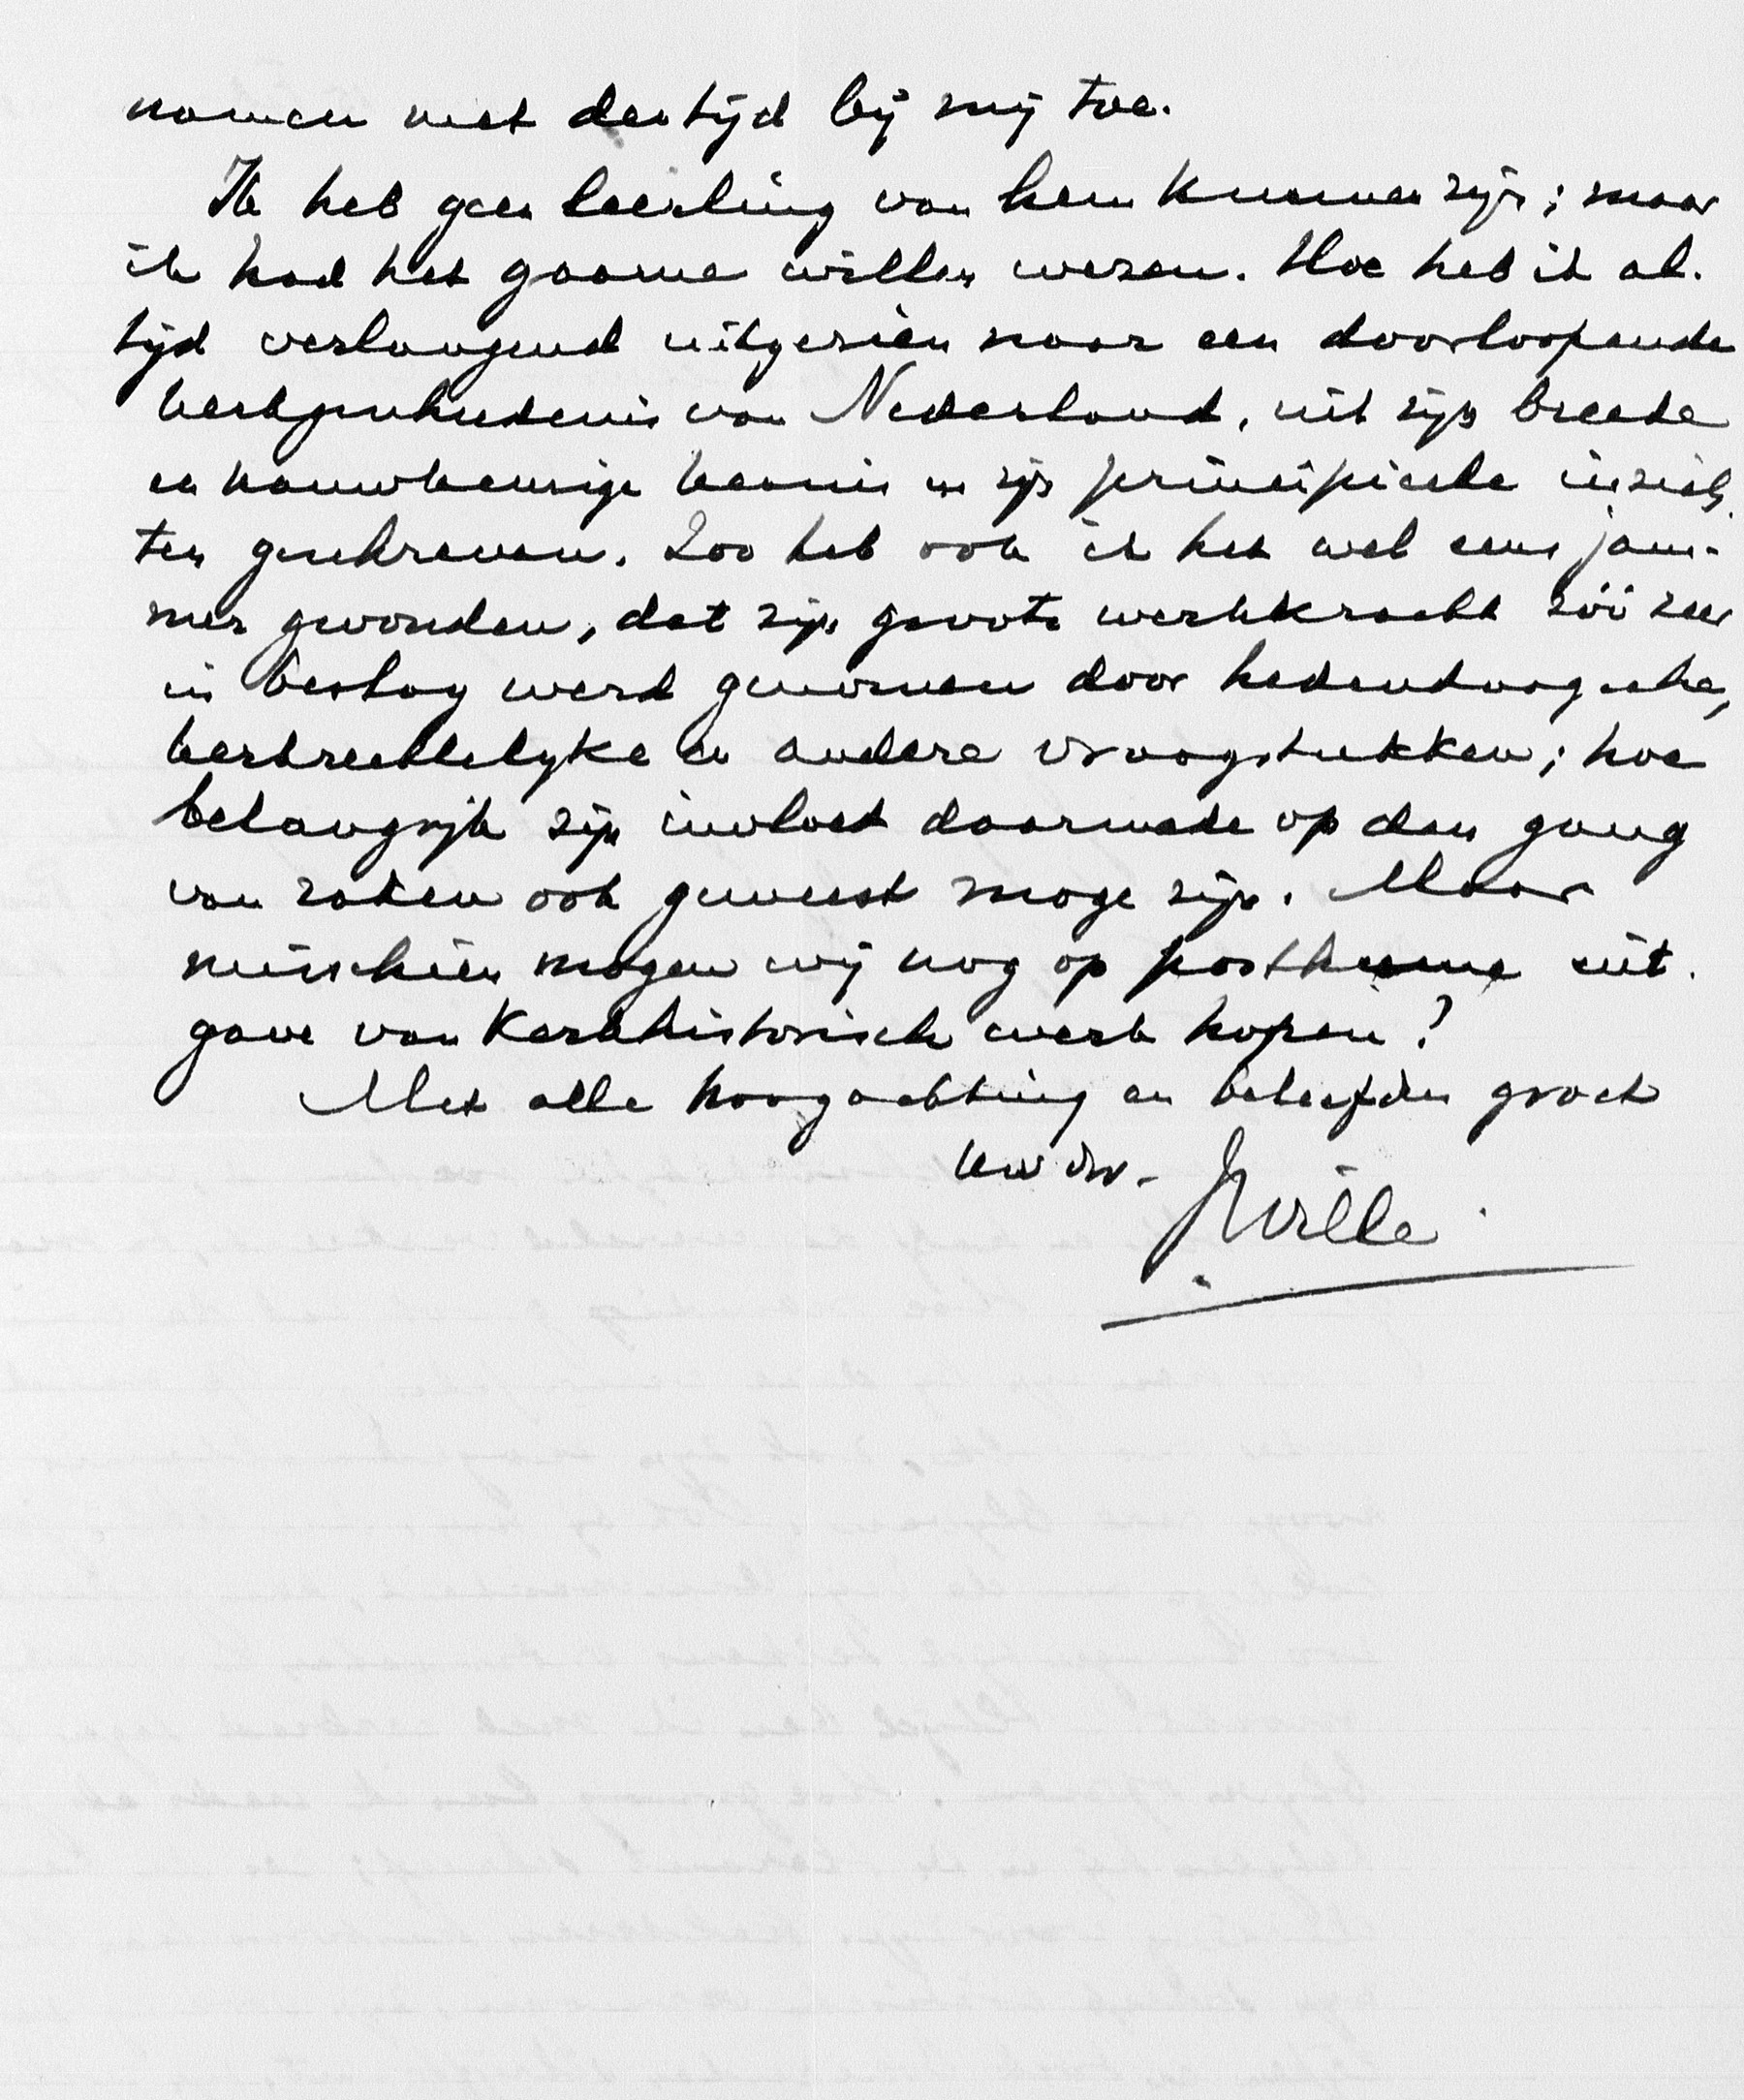 namen met den tijd bij mij toe.
Ik heb geen leerling van hem kunnen zijn; maar
ik had het gaarne willen wezen. Hoe heb ik al-
tijd verlangend uitgezien naar een doorloopende
kerkgeschiedenis van Nederland, uit zijn breede
en nauwkeurige kennis en zijn principieele inzich-
ten geschreven. Zoo heb ook ik het wel eens jam-
mer gevonden, dat zijn groote werkkracht zóó zeer
in beslag werd genomen door hedendaagsche,
kerkrechtelijke en andere vraagstukken; hoe
belangrijk zijn invloed daarmede op den gang
van zaken ook geweest moge zijn. Maar
misschien mogen wij nog op posthume uit-
gave van kerkhistorisch werk hopen?
Met alle hoogachting en beleefden groet
Uw dw.
JWille